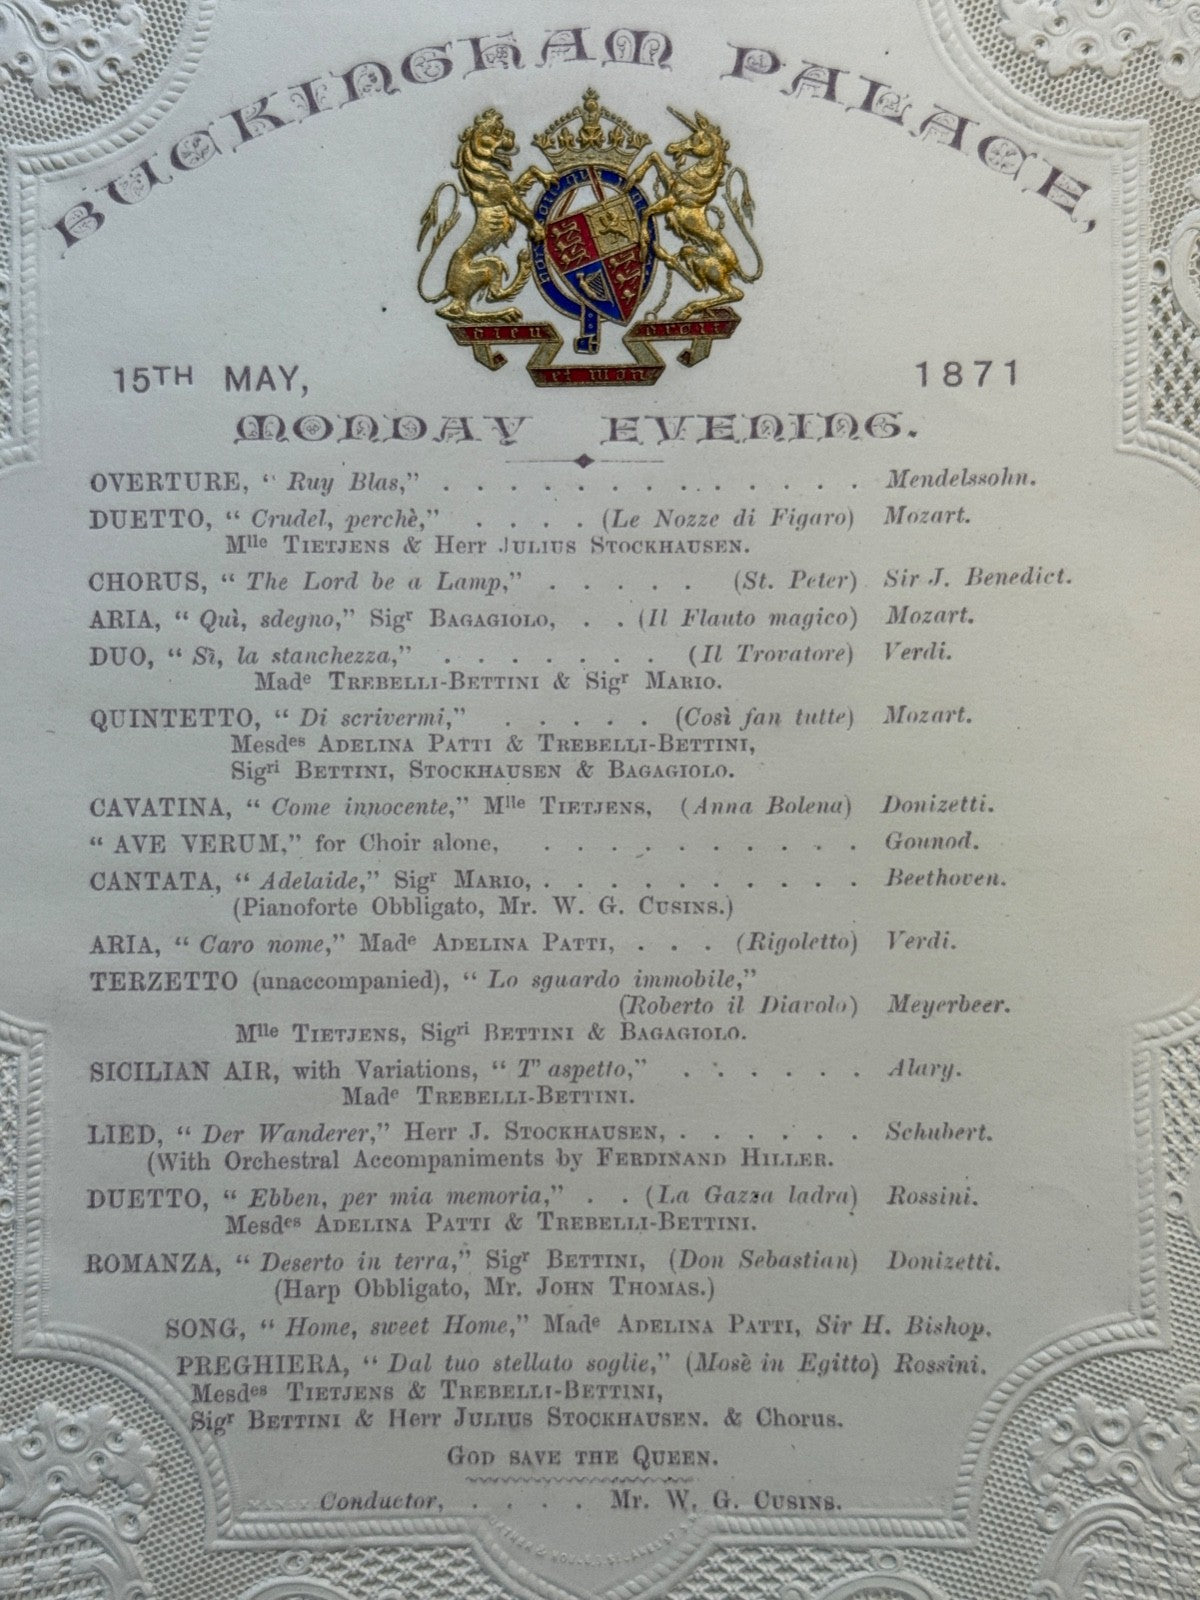 BUCKINGHAM PALACE,
dieu et mon droit
15TH MAY, 1871
MONDAY EVENING.
OVERTURE, “ Ruy Blas,” . . . . . . . . . . . . . Mendelssohn.
DUETTO, “ Crudel, perchè,” . . . . (Le Nozze di Figaro) Mozart.
Mlle TIETJENS & Herr JULIUS STOCKHAUSEN.
CHORUS, “ The Lord be a Lamp,” . . . . . (St. Peter) Sir J. Benedict.
ARIA, “ Quì, sdegno,” Sigr BAGAGIOLO, . . (Il Flauto magico) Mozart.
DUO, “ Sì, la stanchezza,” . . . . . . . (Il Trovatore) Verdi.
Made TREBELLI-BETTINI & Sigr MARIO.
QUINTETTO, “ Di scrivermi,” . . . . . (Così fan tutte) Mozart.
Mesdes ADELINA PATTI & TREBELLI-BETTINI,
Sigri BETTINI, STOCKHAUSEN & BAGAGIOLO.
CAVATINA, “ Come innocente,” Mlle TIETJENS, (Anna Bolena) Donizetti.
“ AVE VERUM,” for Choir alone, . . . . . . . . . . Gounod.
CANTATA, “ Adelaide,” Sigr MARIO, . . . . . . . . . . Beethoven.
(Pianoforte Obbligato, Mr. W. G. CUSINS.)
ARIA, “ Caro nome,” Made ADELINA PATTI, . . . (Rigoletto) Verdi.
TERZETTO (unaccompanied), “ Lo sguardo immobile,”
(Roberto il Diavolo) Meyerbeer.
Mlle TIETJENS, Sigri BETTINI & BAGAGIOLO.
SICILIAN AIR, with Variations, “ T' aspetto,” . . . . . . Alary.
Made TREBELLI-BETTINI.
LIED, “ Der Wanderer,” Herr J. STOCKHAUSEN, . . . . . . Schubert.
(With Orchestral Accompaniments by FERDINAND HILLER.
DUETTO, “ Ebben, per mia memoria,” . . (La Gazza ladra) Rossini.
Mesdes ADELINA PATTI & TREBELLI-BETTINI.
ROMANZA, “ Deserto in terra,” Sigr BETTINI, (Don Sebastian) Donizetti.
(Harp Obbligato, Mr. JOHN THOMAS.)
SONG, “ Home, sweet Home,” Made ADELINA PATTI, Sir H. Bishop.
PREGHIERA, “ Dal tuo stellato soglie,” (Mosè in Egitto) Rossini.
Mesdes TIETJENS & TREBELLI-BETTINI,
Sigr BETTINI & Herr JULIUS STOCKHAUSEN. & Chorus.
GOD SAVE THE QUEEN.
Conductor, . . . . Mr. W. G. CUSINS.